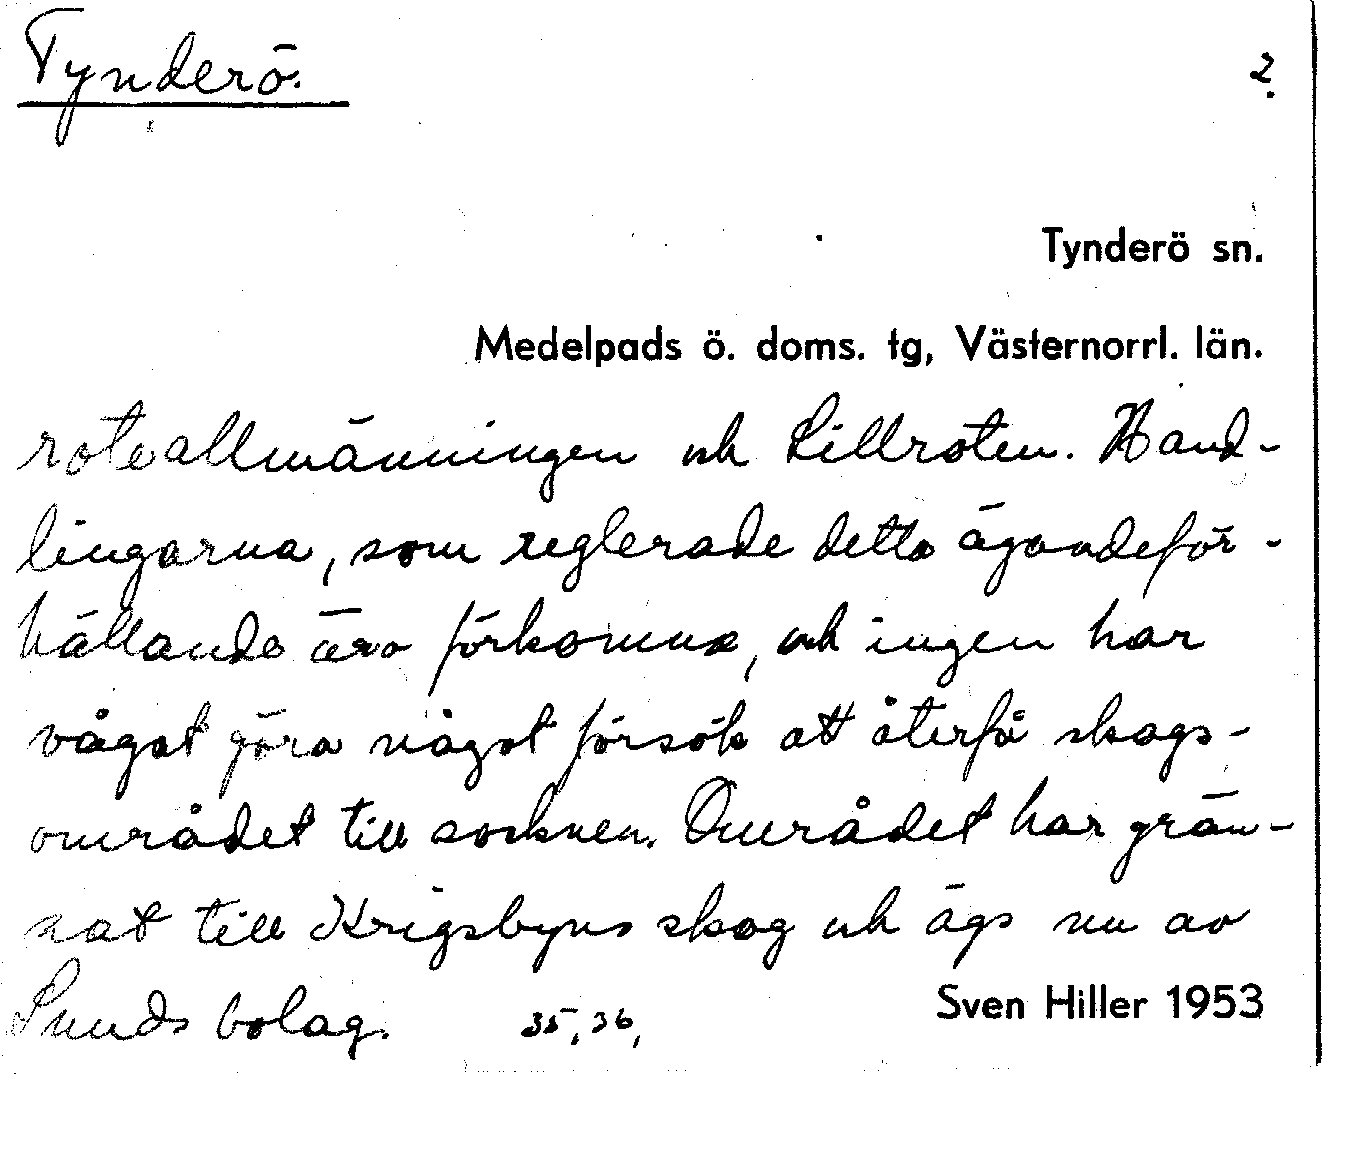 Tynderö.
2.
Tynderö sn.
Medelpads ö. doms. tg, Västernorrl. län.
roteallmänningen och Lillroten. Hand-
lingarna, som reglerade detta ägandeför-
hållande äro förkomna, och ingen har
vågat göra något försök att återfå skogs-
området till socknen. Området har grän-
sat till Krigsbyns skog och ägs nu av
Sunds bolag. 35, 36,
Sven Hiller 1953